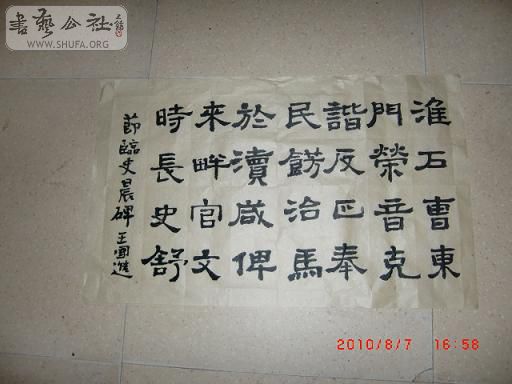 書藝公社
WWW.SHUFA.ORG
淮石曹東
門榮音克
諧反正奉
民餝治馬
於瀆咸俾
來畔官文
時長史舒
節臨史晨碑 王國進
2010/8/7 16:58